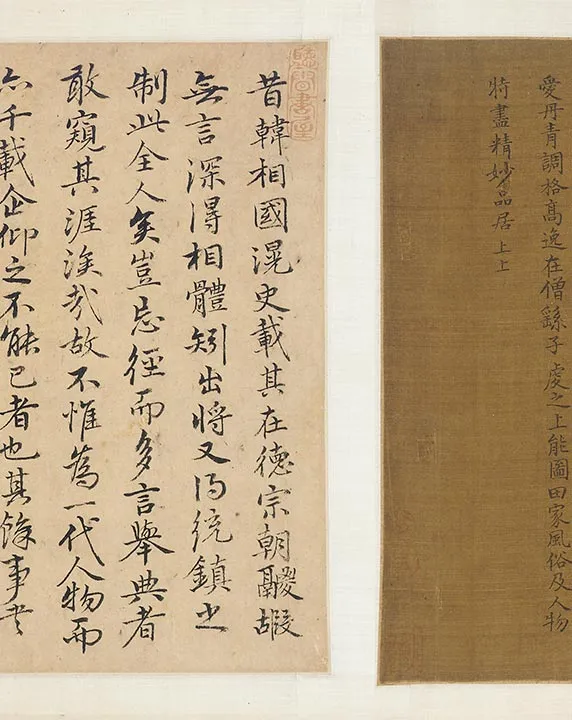 愛丹青調格高逸在僧繇子虔之上能圖田家風俗及人物
特盡精妙品居上上
昔韓相國滉史載其在德宗朝鬷嘏
無言深得相體矧出將又得統鎮之
制此全人矣豈忘徑而多言舉典者
敢窺其涯涘哉故不惟為一代人物而
亦千載企仰之不能已者也其餘事